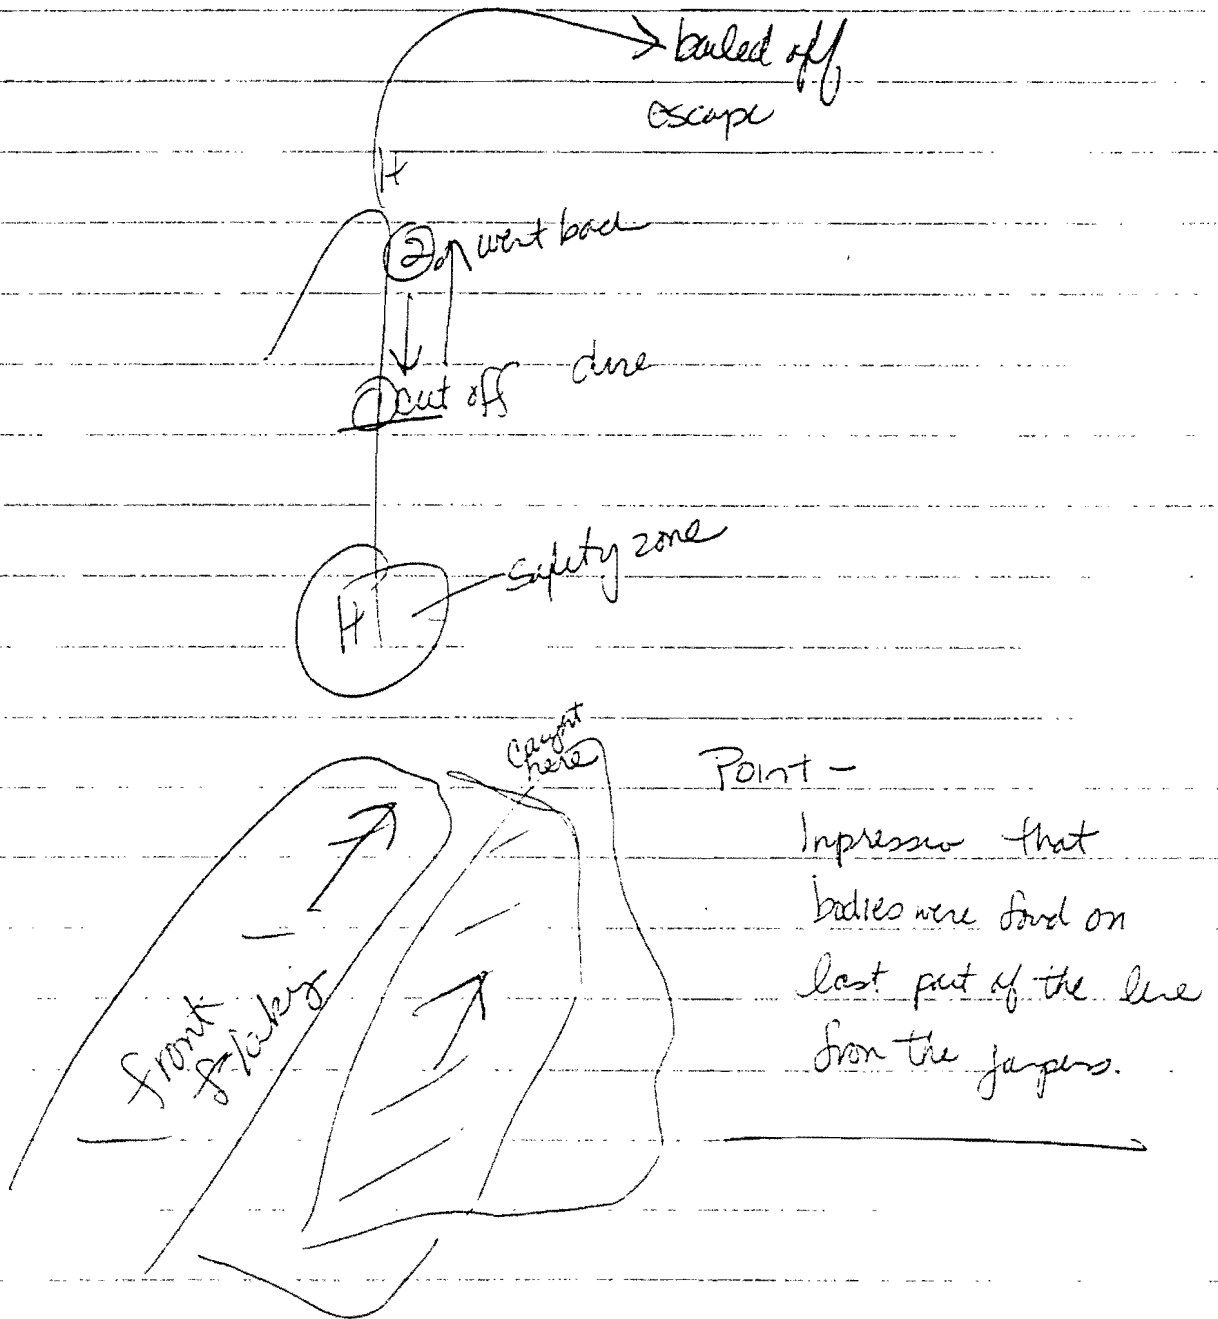 bailed off
escape
H
2 went back
1 cut off
H
safety zone
caught
here
front
Point -
Impression that
bodies were found on
last part of the line
from the jumpers.